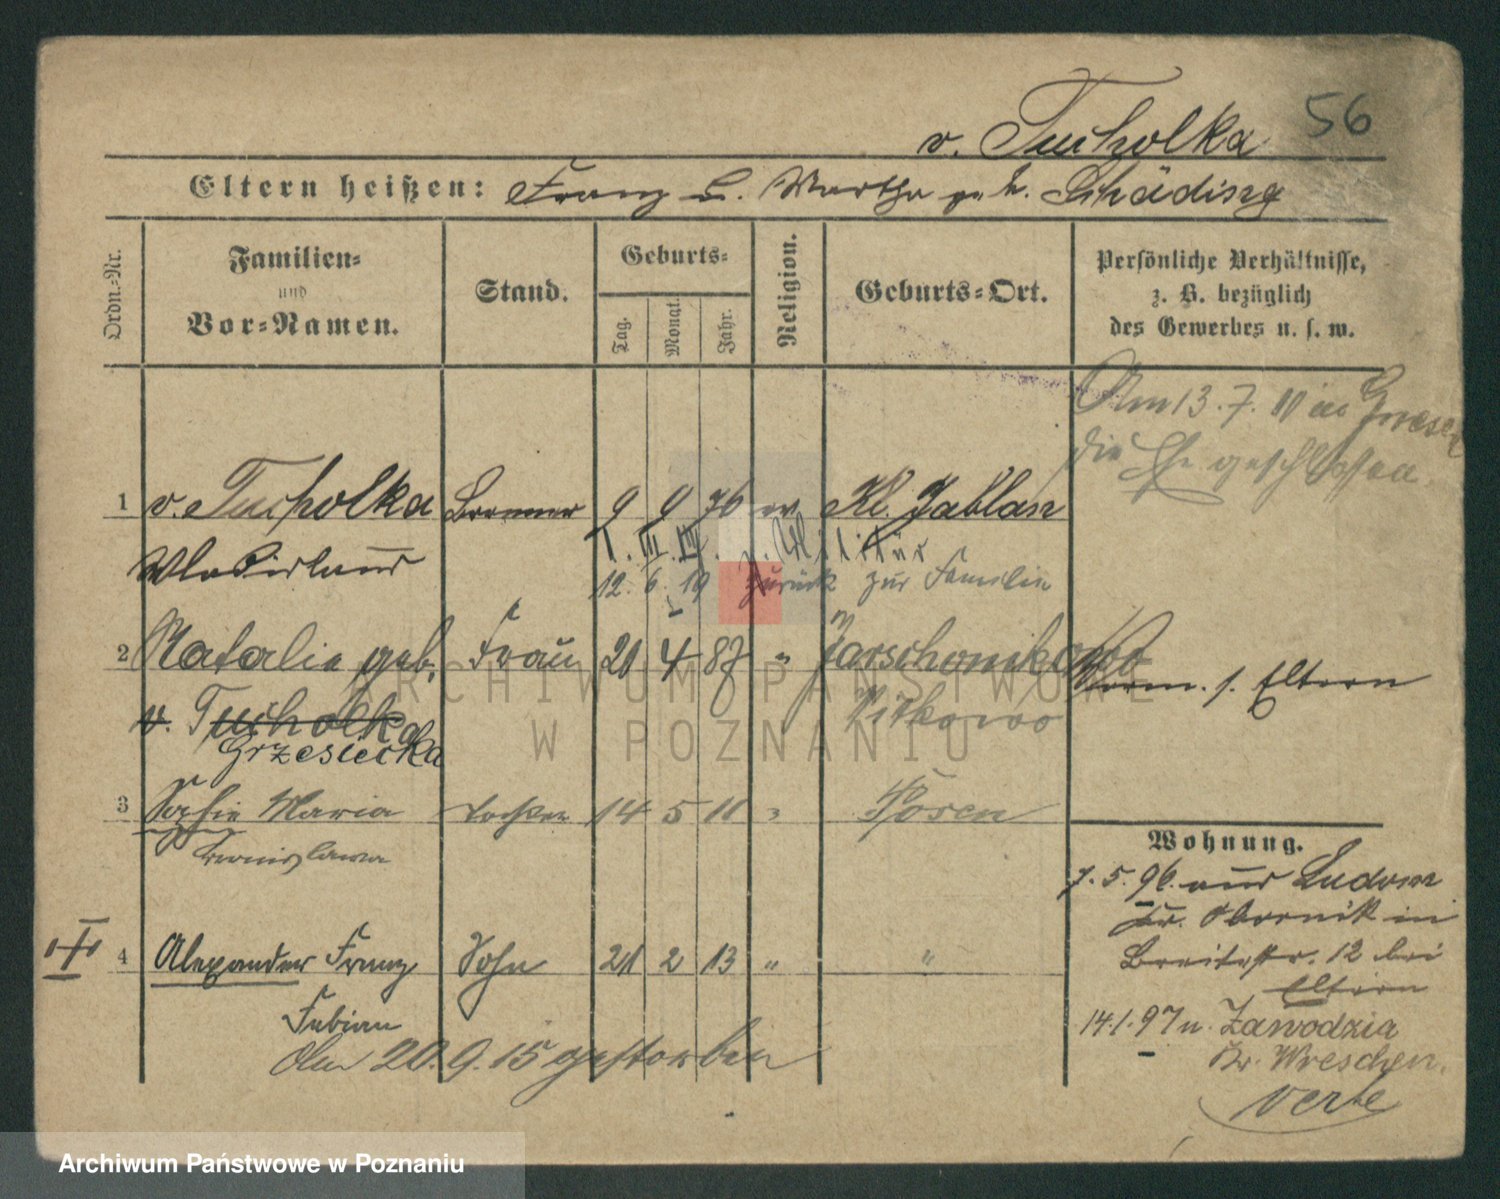 v. Tucholka 56
Eltern heißen: Franz u. Martha geb. Schäding
Ordn.-Nr.
Familien- und Vor-Namen.
Stand.
Geburts-
Tag. Monat. Jahr.
Religion.
Geburts-Ort.
Persönliche Verhältnisse,
z. B. bezüglich
des Gewerbes u. s. w.
Am 13. 7. 10 in Gnesen
die Ehe geschlossen.
1 v. Tucholka Brenner 9 9 76 ev Kl. Jablau
Wladislaus
z. Militär
12. 6. 19 zurück zur Familie
2 Natalie geb. Frau 20 4 87 " Jarschomkowo
v. Tucholka Witkowo
Grzesiecka
Verm. s. Eltern
3 Sofie Maria Tochter 14 5 11 " Posen
Bronislawa
4 Alexander Franz Sohn 21 2 13 " "
Fabian
Am 20. 9. 15 gestorben
Wohnung.
7. 5. 96. aus Ludom
Kr. Obornik in
Breitestr. 12 bei
Eltern
14. 1. 97 n. Zawodzia
Kr. Wreschen.
verte
ARCHIWUM PAŃSTWOWE
W POZNANIU
Archiwum Państwowe w Poznaniu